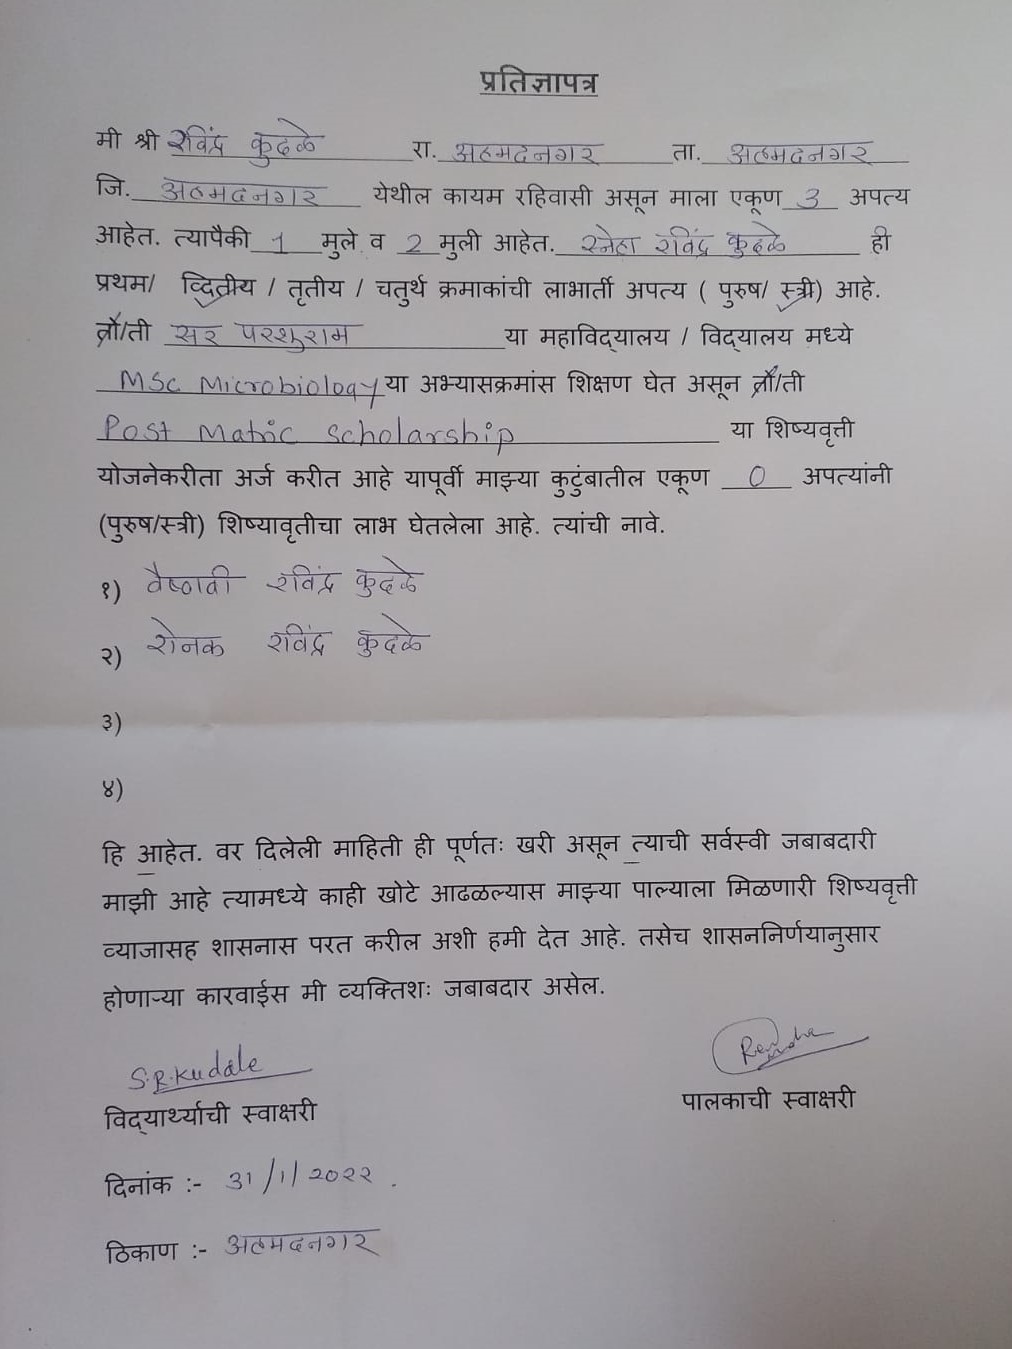 प्रतिज्ञापत्र
मी श्री रविंद्र कुदळे रा. अहमदनगर ता. अहमदनगर
जि. अहमदनगर येथील कायम रहिवासी असून माला एकूण 3 अपत्य
आहेत. त्यापैकी 1 मुले व 2 मुली आहेत. स्नेहा रविंद्र कुदळे ही
प्रथम/ व्दितीय / तृतीय / चतुर्थ क्रमाकांची लाभार्ती अपत्य ( पुरुष/ स्त्री) आहे.
तो/ती सर परशुराम या महाविद्यालय / विद्यालय मध्ये
MSc Microbiology या अभ्यासक्रमांस शिक्षण घेत असून तो/ती
Post Matric scholarship या शिष्यवृत्ती
योजनेकरीता अर्ज करीत आहे यापूर्वी माझ्या कुटुंबातील एकूण 0 अपत्यांनी
(पुरुष/स्त्री) शिष्यावृतीचा लाभ घेतलेला आहे. त्यांची नावे.
१) वैष्णवी रविंद्र कुदळे
२) रोनक रविंद्र कुदळे
३)
४)
हि आहेत. वर दिलेली माहिती ही पूर्णतः खरी असून त्याची सर्वस्वी जबाबदारी
माझी आहे त्यामध्ये काही खोटे आढळल्यास माझ्या पाल्याला मिळणारी शिष्यवृत्ती
व्याजासह शासनास परत करील अशी हमी देत आहे. तसेच शासननिर्णयानुसार
होणाऱ्या कारवाईस मी व्यक्तिशः जबाबदार असेल.
S.R.Kudale
विद्यार्थ्याची स्वाक्षरी पालकाची स्वाक्षरी
दिनांक :- 31/1/2022 .
ठिकाण :- अहमदनगर